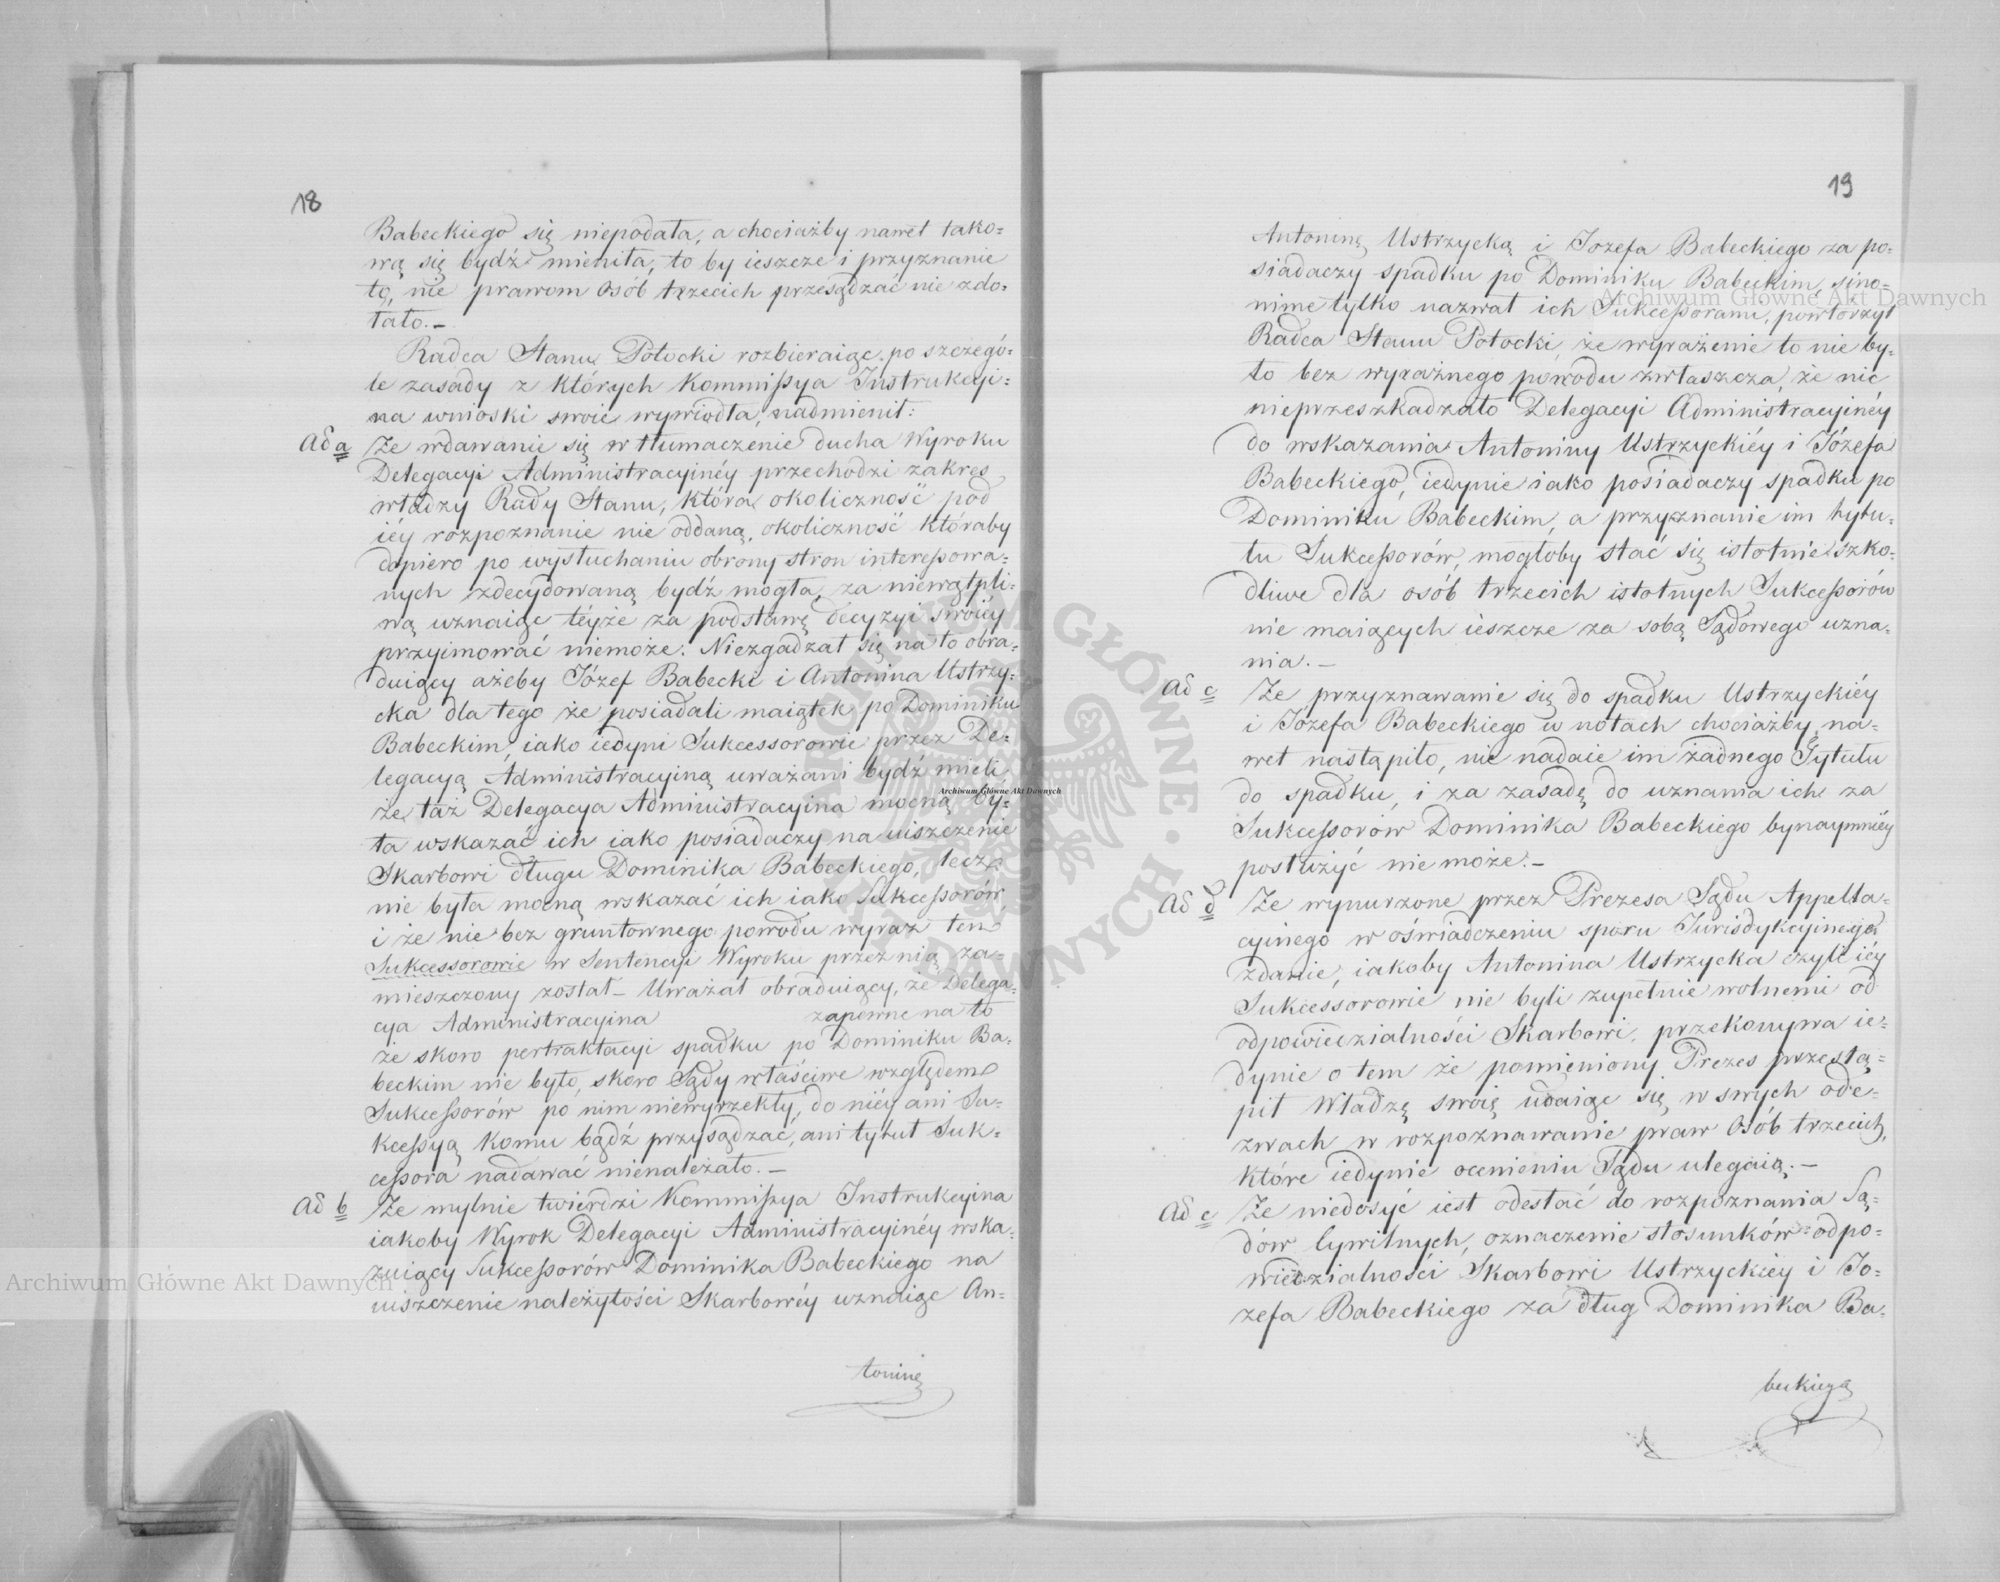 18
Babeckiego się niepodała, a chociażby nawet tako-
wą się bydź mieniła, to by ieszcze i przyznanie
to, nic prawom osób trzecich przesądzać nie zdo-
łało.—
Radca Stanu Potocki rozbieraiąc po szczegó-
le zasady z których Kommissya Instrukcyi-
na wnioski swoie wywiodła, nadmienił:
Ad a Że wdawanie się w tłumaczenie ducha Wyroku
Delegacyi Administracyinéy przechodzi zakres
władzy Rady Stanu, która okoliczność pod
iéy rozpoznanie nie oddaną, okoliczność któraby
dopiero po wysłuchaniu obrony stron interessowa-
nych zdecydowaną bydź mogła, za niewątpli-
wą uznaiąc téyże za podstawę decyzyi swoiéy
przyimować niemoże. Niezgadzał się na to obra-
duiący ażeby Józef Babecki i Antonina Ustrzy-
cka dla tego że posiadali maiątek po Dominiku
Babeckim, iako iedyni Sukcessorowie przez De-
legacyą Administracyiną uważani bydź mieli,
że taż Delegacya Administracyina mocną by-
ła wskazać ich iako posiadaczy na uiszczenie
Skarbowi długu Dominika Babeckiego, lecz
nie była mocną wskazać ich iako Sukcessorów,
i że nie bez gruntownego powodu wyraz ten
Sukcessorowie w Sentencyi Wyroku przez nią za-
mieszczony został— Uważał obraduiący, że Delega-
cya Administracyina zapewne na to
że skoro pertraktacyi spadku po Dominiku Ba-
beckim nie było, skoro Sądy właściwe względem
Sukcessorów po nim niewyrzekły, do niéy ani Su-
kcessyą komu bądź przysądzać, ani tytuł Suk-
cessora nadawać nienależało.—
Ad b Że mylnie twierdzi Kommissya Instrukcyina
iakoby Wyrok Delegacyi Administracyinéy wska-
zuiący Sukcessorów Dominika Babeckiego na
uiszczenie należytości Skarbowéy uznaiąc An-
toninę
19
Antoninę Ustrzycką i Jozefa Babeckiego za po-
siadaczy spadku po Dominiku Babeckim, sino-
nime tylko nazwał ich Sukcessorami, powtorzył
Radca Stanu Potocki, że wyrażenie to nie by-
ło bez wyraźnego powodu zwłaszcza, że nic
nieprzeszkadzało Delegacyi Administracyinéy
do wskazania Antoniny Ustrzyckiéy i Józefa
Babeckiego, iedynie iako posiadaczy spadku po
Dominiku Babeckim, a przyznanie im tytu-
łu Sukcessorów, mogłoby stać się istotnie szko-
dliwe dla osób trzecich istotnych Sukcessorów
nie maiących ieszcze za sobą Sądowego uzna-
nia.—
Ad c Że przyznawanie się do spadku Ustrzyckiéy
i Józefa Babeckiego w notach chociażby na-
wet nastąpiło, nie nadaie im żadnego Tytułu
do spadku, i za zasadę do uznania ich za
Sukcessorów Dominika Babeckiego bynaymniéy
posłużyć nie może.—
Ad d Że wynurzone przez Prezesa Sądu Appella-
cyinego w oświadczeniu sporu Jurisdykcyinego
zdanie, iakoby Antonina Ustrzycka czyli iéy
Sukcessorowie nie byli zupełnie wolnemi od
odpowiedzialności Skarbowi, przekonywa ie-
dynie o tem że pomieniony Prezes przestą-
pił Władzę swoię udaiąc się w swych ode-
zwach w rozpoznawanie praw osób trzecich,
które iedynie ocenieniu Sądu ulegaią.—
Ad e Że niedosyć iest odesłać do rozpoznania Są-
dów Cywilnych, oznaczenie stosunków odpo-
wiedzialności Skarbowi Ustrzyckiéy i Jo-
zefa Babeckiego za dług Dominika Ba-
beckiego
Archiwum Główne Akt Dawnych
Archiwum Główne Akt Dawnych
Archiwum Główne Akt Dawnych
ARCHIWUM GŁÓWNE AKT DAWNYCH